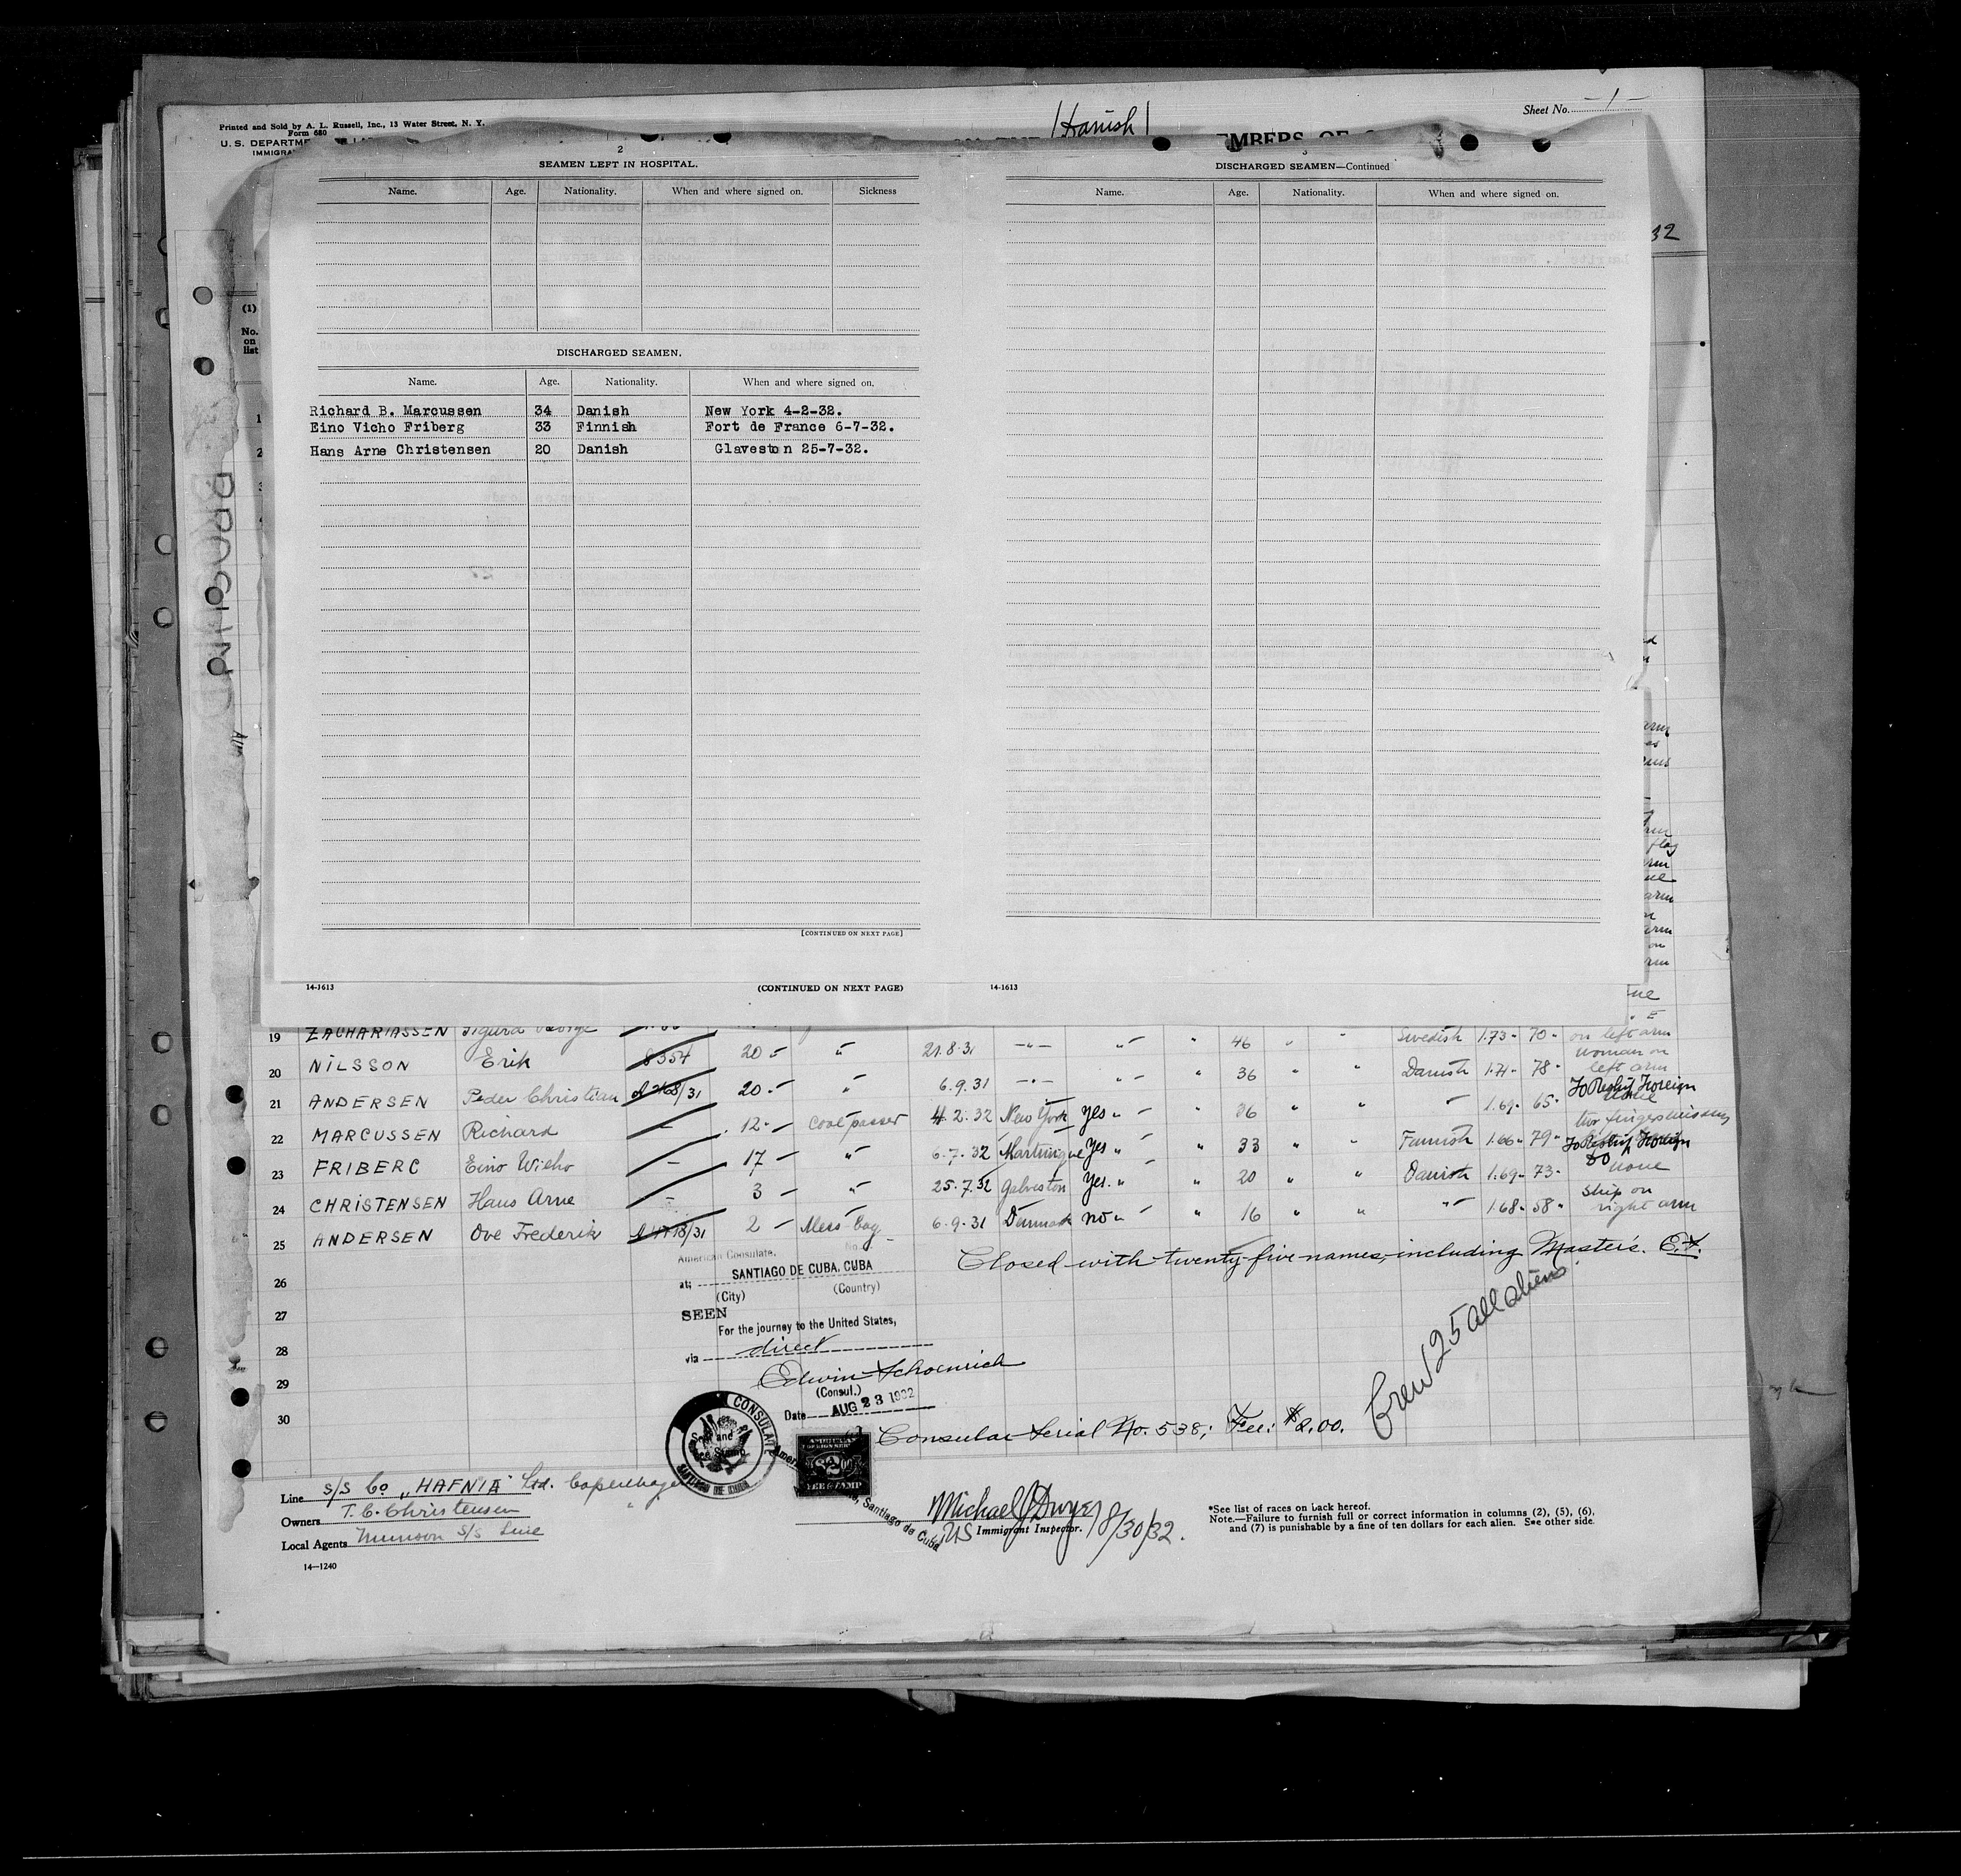 Printed and Sold by A. L. Russell, Inc., 13 Water Street, N. Y.
Form 680
U. S. DEPARTME
IMMIGRA
Sheet No. -1-
MBERS OF
32
2
SEAMEN LEFT IN HOSPITAL.
Name. Age. Nationality. When and where signed on. Sickness
DISCHARGED SEAMEN.
Name. Age. Nationality. When and where signed on.
Richard B. Marcussen 34 Danish New York 4-2-32.
Eino Vicho Friberg 33 Finnish Fort de France 6-7-32.
Hans Arne Christensen 20 Danish Glaveston 25-7-32.
[CONTINUED ON NEXT PAGE]
3
DISCHARGED SEAMEN—Continued
Name. Age. Nationality. When and where signed on.
14-1613 (CONTINUED ON NEXT PAGE) 14-1613
(1)
No.
on
list
19 ZACHARIASSEN Sigurd George
20 NILSSON Erik 8354 20 - " 21.8.31 -"- "- " 46 " " Swedish 1.73 - 70 - on left arm
woman on
left arm
21 ANDERSEN Peder Christian A 2168/31 20 - " 6.9.31 -"- "- " 36 " " Danish 1.71 - 78 -
To Reship Foreign
22 MARCUSSEN Richard - 12 - Coal passer 4.2.32 New York yes " - " 36 " " " 1.69 - 65 -
two fingers missing
23 FRIBERG Eino Wicho - 17 - " 6.7.32 Martinique Yes " " 33 " " Finnish 1.66 - 79 - To Reship Foreign
24 CHRISTENSEN Hans Arne - 3 - " 25.7.32 Galveston Yes. " " 20 " " Danish 1.69 - 73 - Do none
25 ANDERSEN Ove Frederik A 4718/31 2 - Mess-boy 6.9.31 Danmark no " - " 16 " " "- 1.68 - 58 " ship on
right arm
Closed with twenty-five names, including Master's. E.S.
26
27
28
29
30
American Consulate, No.
at; SANTIAGO DE CUBA. CUBA
(City) (Country)
SEEN
For the journey to the United States,
via direct
Edwin Schoenrich
(Consul.)
Date AUG 23 1932
Consular Serial No. 538; Fee: $2.00.
Crew 25 all aliens
CONSULATE
Seal and
Fee Stamp
SANTIAGO DE CUBA
FEE STAMP
Santiago de Cuba
Line S/S Co "HAFNIA" Ltd. Copenhagen
Owners T. C. Christensen "
Local Agents Munson S/S Line
14—1240
Michael J Dwyer 8/30/32.
US Immigrant Inspector.
*See list of races on back hereof.
Note.—Failure to furnish full or correct information in columns (2), (5), (6),
and (7) is punishable by a fine of ten dollars for each alien. See other side.